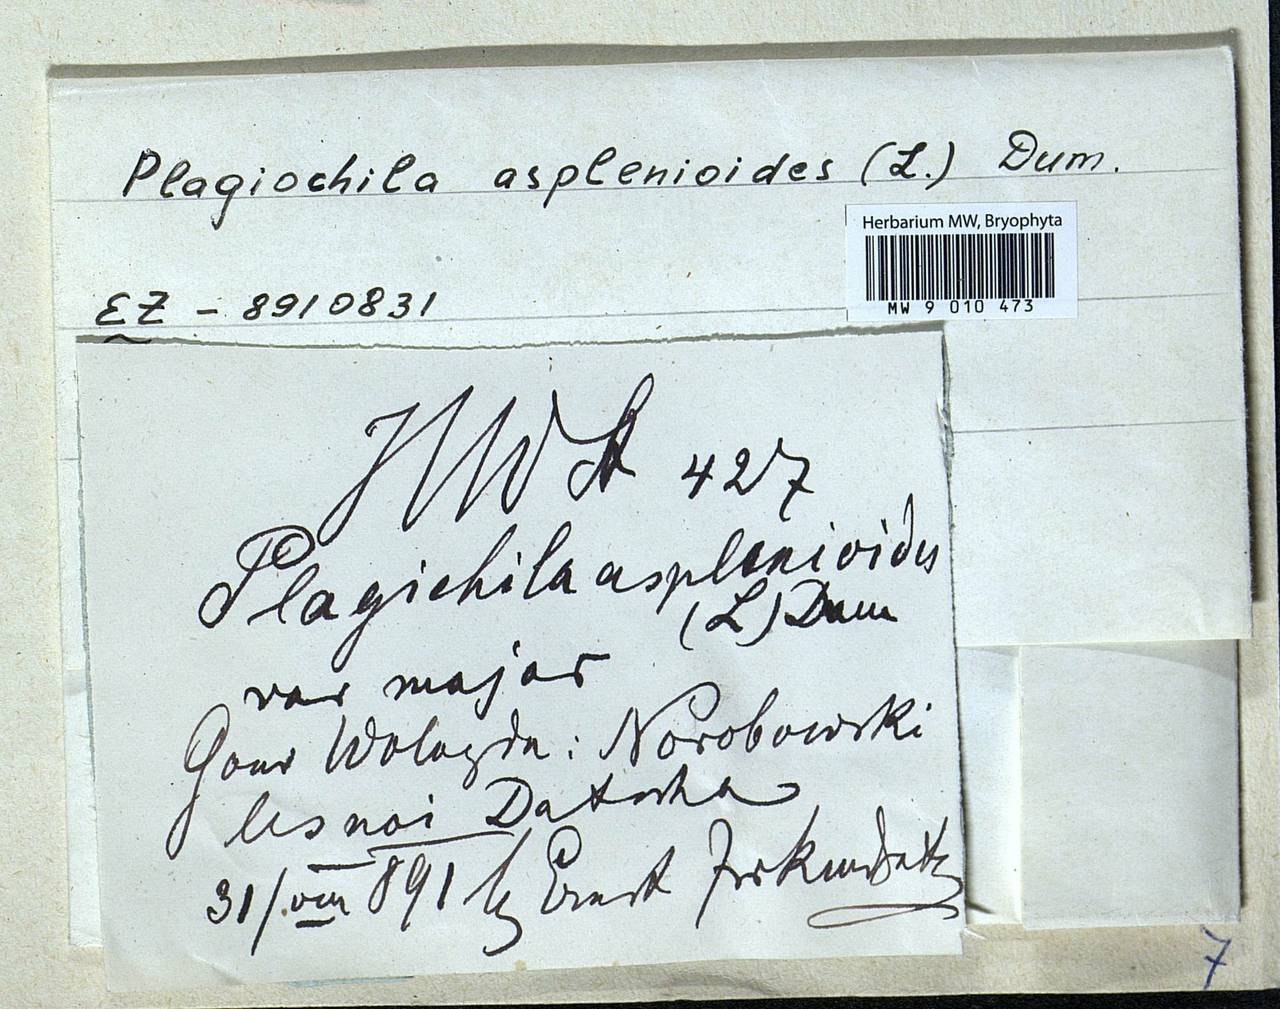 Plagiochila asplenioides (L.) Dum.
Herbarium MW, Bryophyta
MW 9 010 473
EZ - 8910831
427
Plagichila asplenioides
(L) Dum
var major
Gour Wologda:
lesnoi Datscha
31/VIII 891 lg Ernst
7